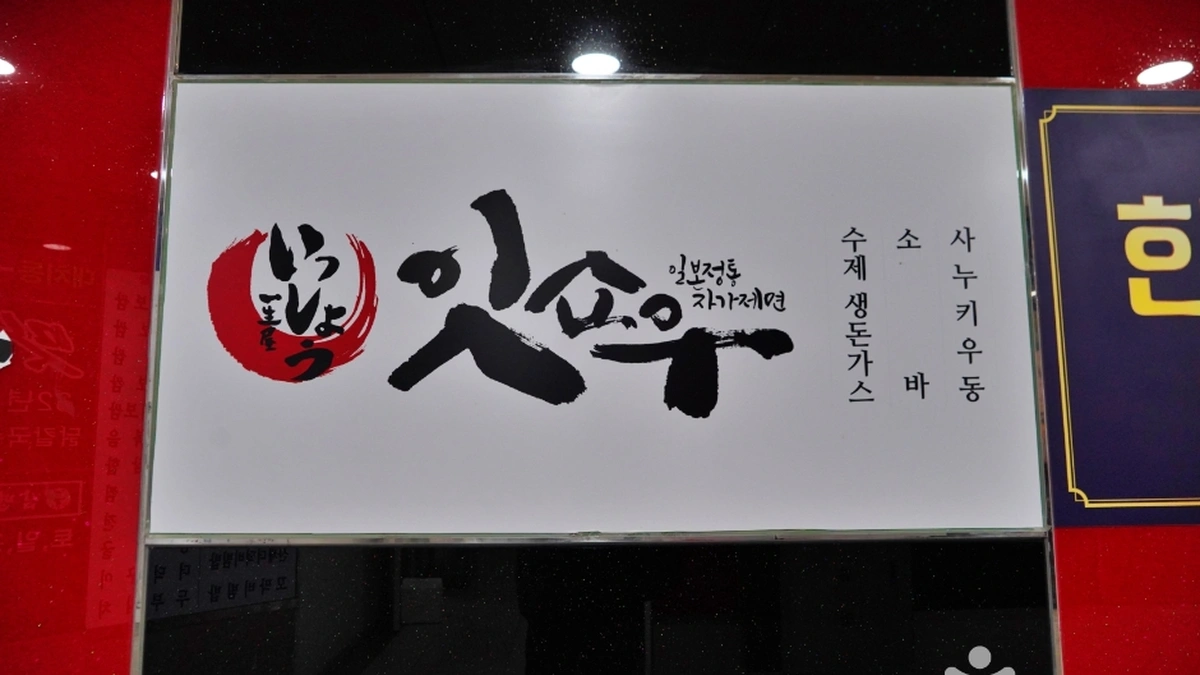 いっ
しょう
一生屋
잇쇼우
일본정통
자가제면
사누키우동
소바
수제생돈가스
한